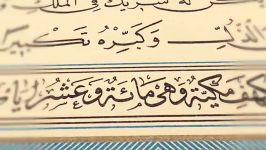 لَهُ شَرِيكٌ فِي الْمُلْكِ
الذُّلِّ وَكَبِّرْهُ تَكْبِيرًا
كهف مَكِّيَّةٌ وَهِيَ مِائَةٌ وَعَشْرُ آيَات